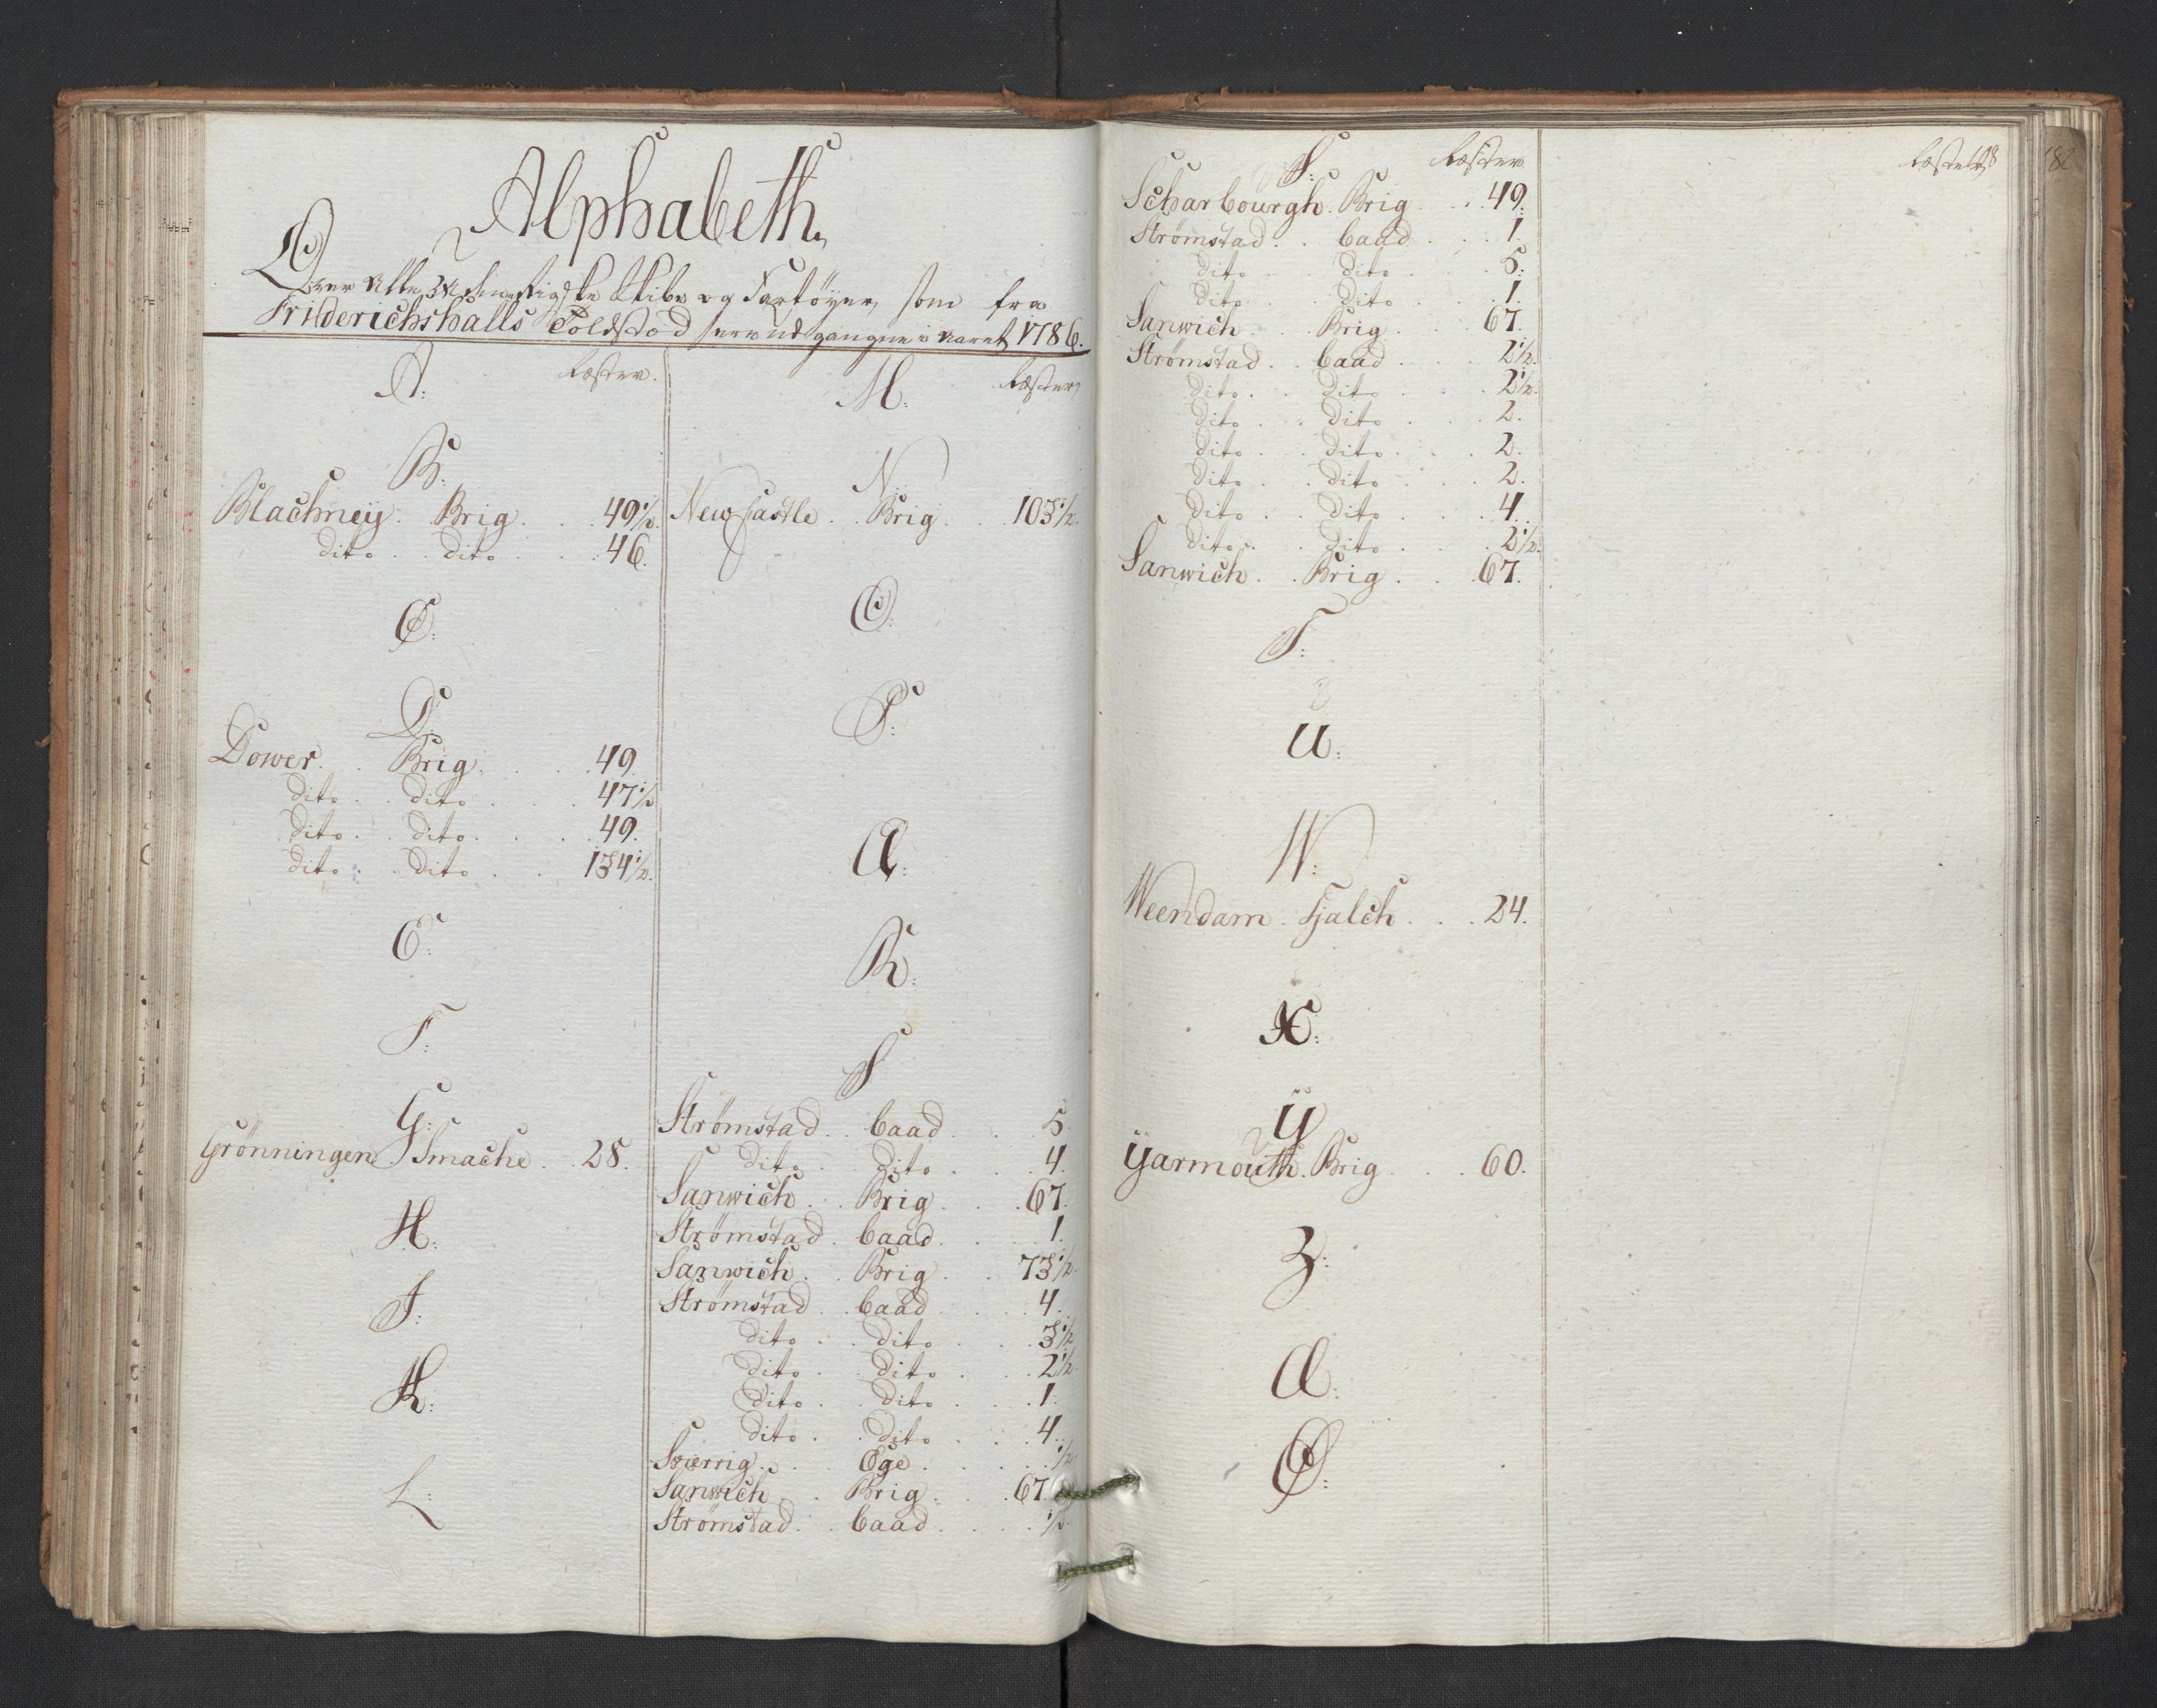 Alphabeth
Over Alle udenrigske Skibe og Fartøyer, som fra
Friderichshalls Toldstæd ere udgangne i Aaret 1786.
A: Læster.
B:
Blachney. Brig. 49 1/2.
dito dito 46.
C:
D:
Dower. Brig. 49.
dito dito 47 1/2
dito dito 49.
dito dito 134 1/2.
E:
F:
G:
Grønningen Smache 28.
H:
I:
K:
L:
M: Læster
N:
New Castle Brig 103 1/2.
O:
P:
Q:
R:
S
Strømstad baad 5.
dito dito 4.
Sanwich Brig 67.
Strømstad baad 1.
Sanwich Brig 73 1/2.
Strømstad baad 4.
dito dito 3 1/2
dito dito 2 1/2.
dito dito 1.
dito dito 4.
Sverrig Ege 1/2.
Sanwich Brig 67.
Strømstad baad 1/2.
S: Læster
Scharbourgh. Brig 49.
Strømstad baad 1.
dito dito 5.
dito dito 1.
Sanwich Brig 67.
Strømstad baad 2 1/2.
dito dito 2 1/2.
dito dito 2.
dito dito 2.
dito dito 2.
dito dito 4.
dito dito 2 1/2.
Sanwich Brig 67.
T:
U:
W:
Weendam Tjalch 24.
X:
Y
Yarmouth. Brig 60.
Z:
Æ:
Ø:
Læster